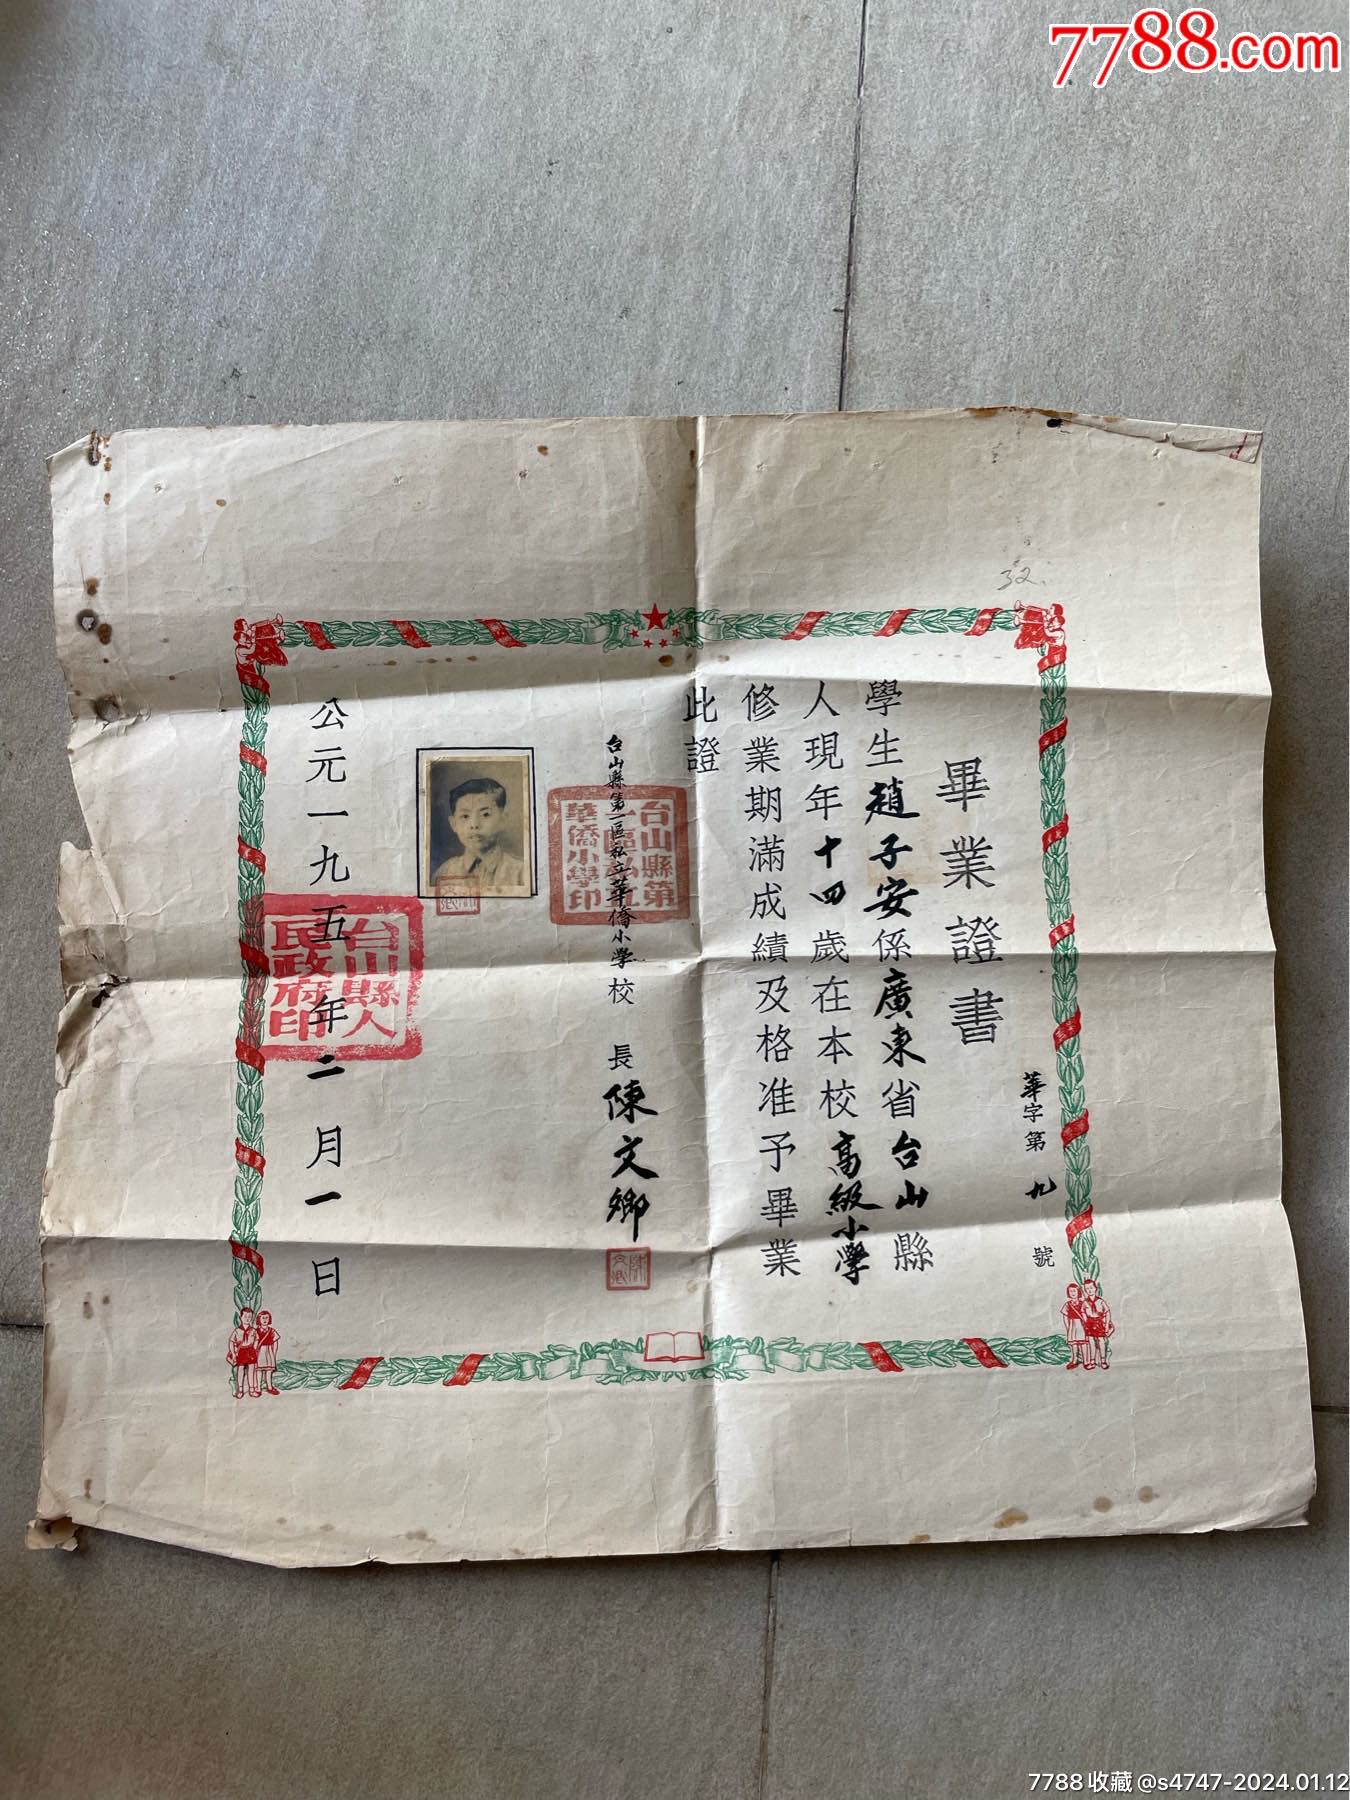 7788.com
32
畢業證書
華字第九號
學生趙子安係廣東省台山縣
人現年十四歲在本校高級小學
修業期滿成績及格准予畢業
此證
台山縣第一區私立華僑小學校長陳文鄉
台山縣第
一區私立
華僑小學印
公元一九五年二月一日
台山縣人
民政府印
7788收藏@s4747-2024.01.12